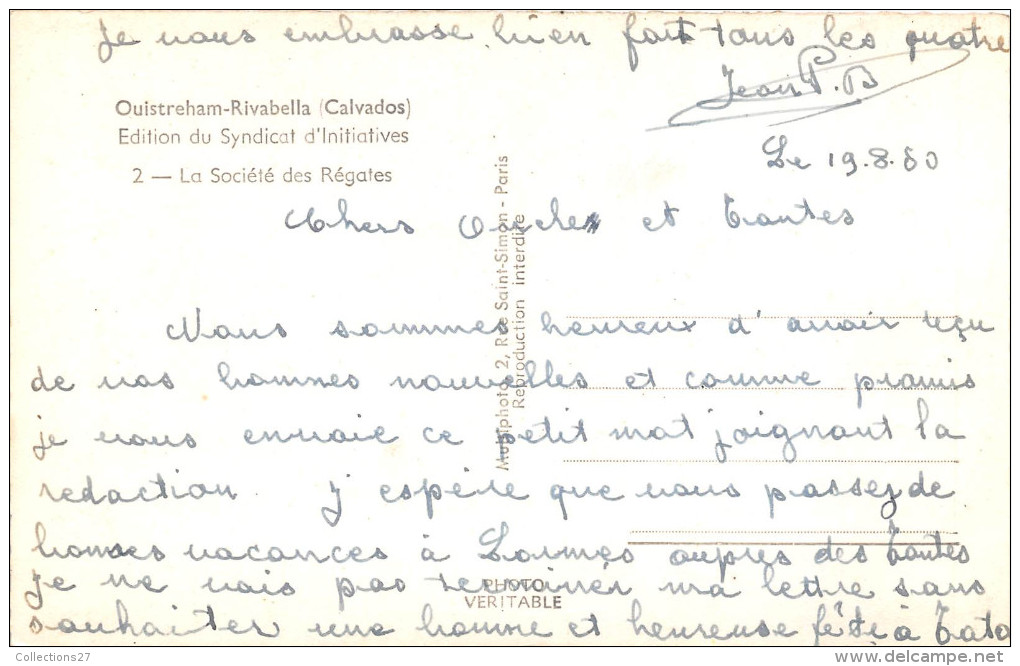 je vous embrasse bien fort tous les quatre
Jean P. B
Ouistreham-Rivabella (Calvados)
Edition du Syndicat d'Initiatives
2 — La Société des Régates
Le 19.8.60
Chers Oncles et Tantes
Nous sommes heureux d'avoir reçu
de vos bonnes nouvelles et comme promis
je vous envoie ce petit mot joignant la
redaction J espère que vous passez de
bonnes vacances à Lormes aupres des Tantes
Je ne vais pas terminer ma lettre sans
souhaiter une bonne et heureuse fête à Tato
Multiphoto 2, Rue Saint-Simon - Paris
Reproduction interdite
PHOTO
VERITABLE
Collections27
http://www.delcampe.net